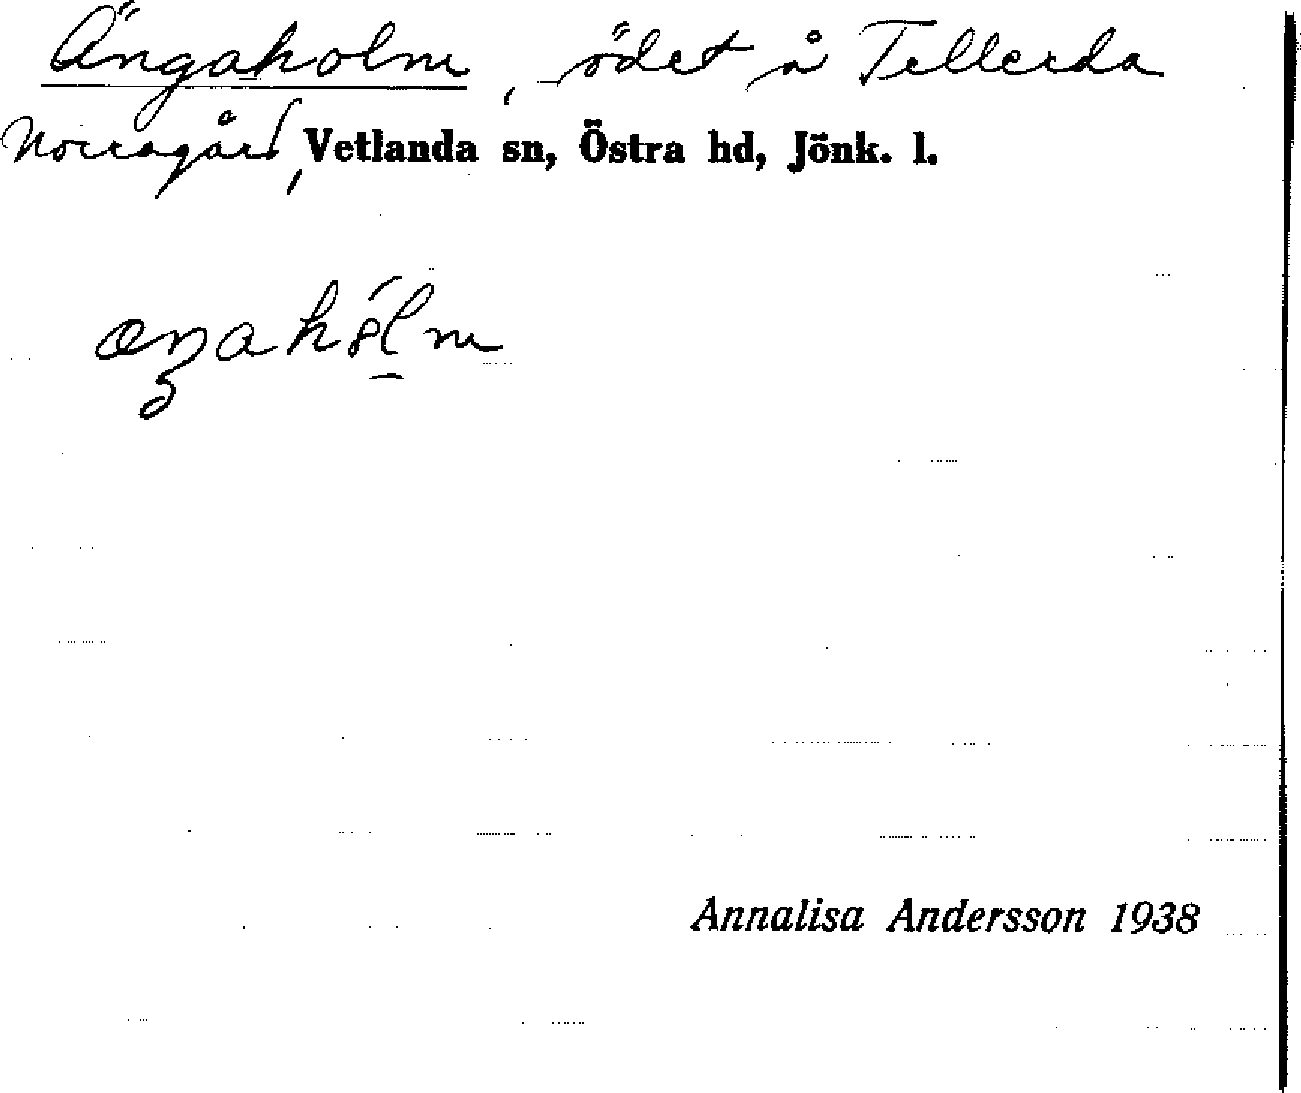 Ängaholm, ödet å Tellerda
Norragård, Vetlanda sn, Östra hd, Jönk. l.
Annalisa Andersson 1938